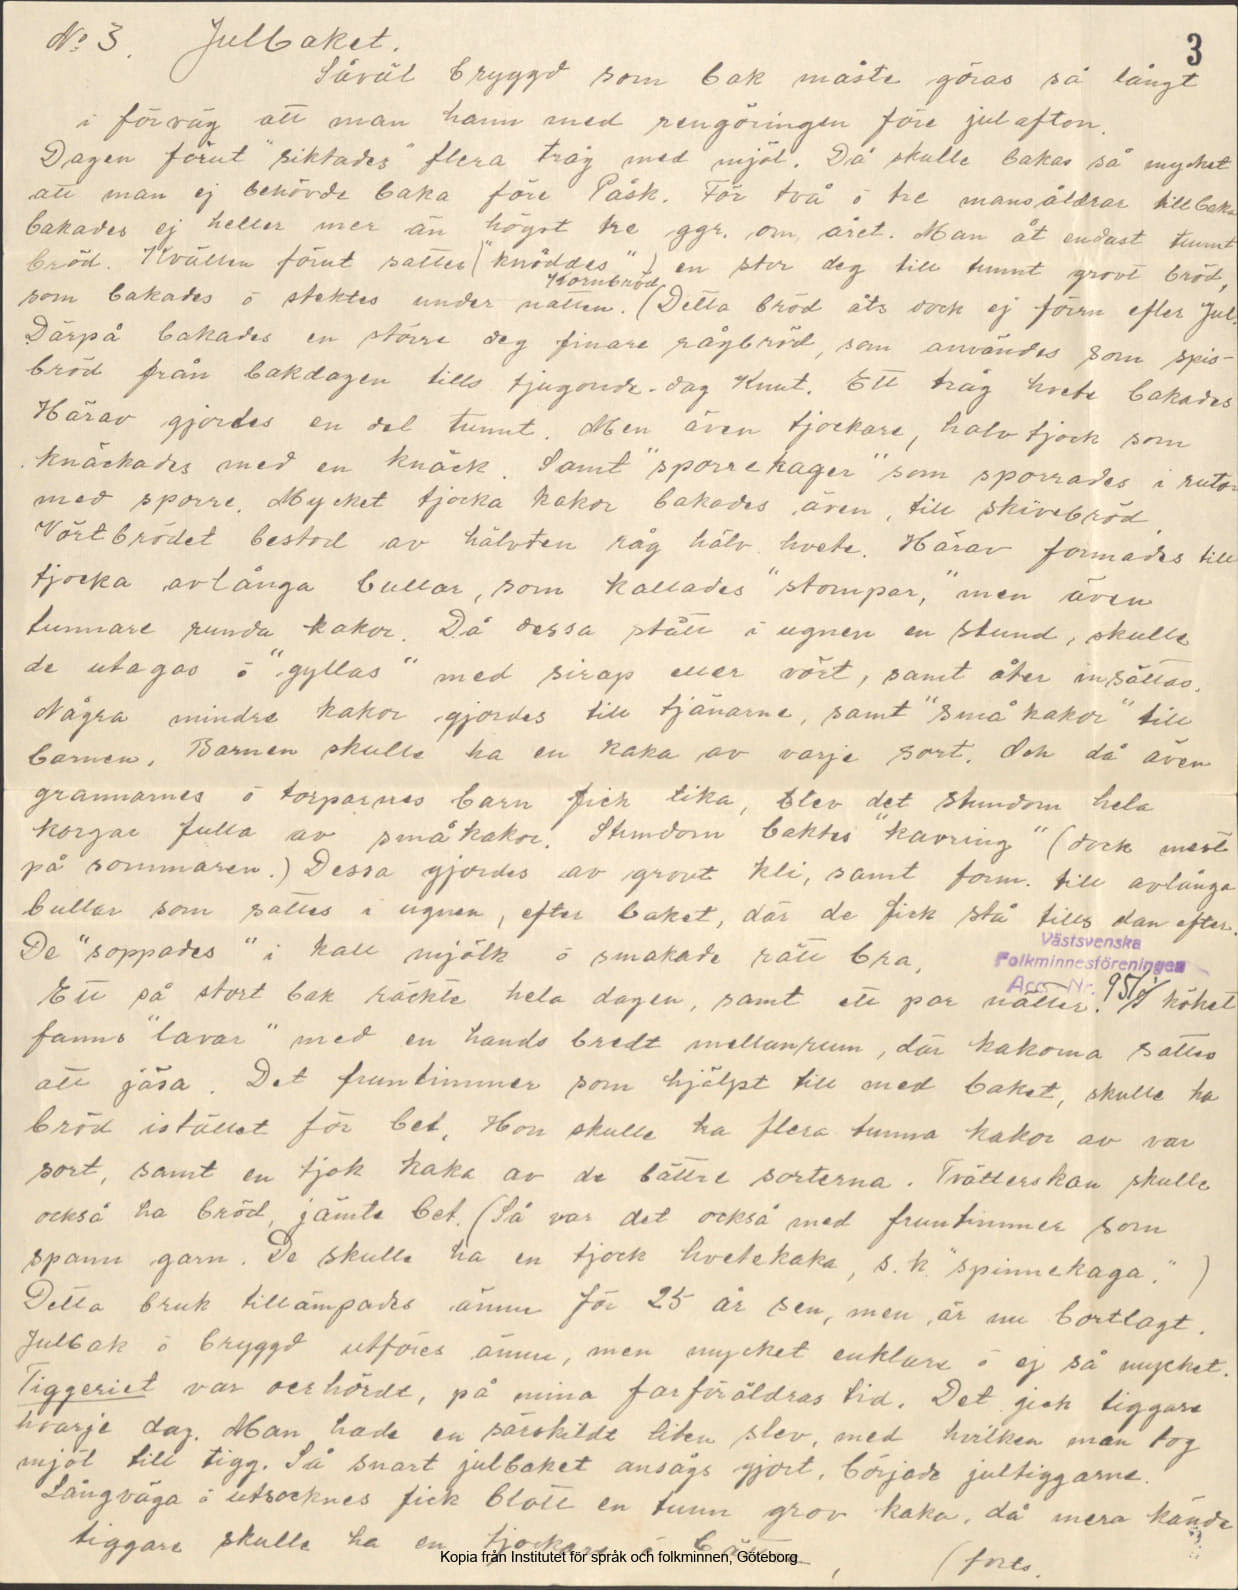 No 3. Julbaket. 3
Såväl bryggd som bak måste göras så långt
i förväg att man hann med rengöringen före julafton.
Dagen förut "siktades" flera tråg med mjöl. Då skulle bakas så mycket
att man ej behövde baka före Påsk. För två ó tre mansåldrar tillbaka
bakades ej heller mer än högst tre ggr. om året. Man åt endast tunnt
bröd. Kvällen förut sattes ("knöddes") en stor deg till tunnt grovt bröd,
Kornbröd
som bakades ó stektes under natten. (Detta bröd åts dock ej förrn efter Jul.
Därpå bakades en större deg finare rågbröd, som användes som spis-
bröd från bakdagen tills tjugonde-dag Knut. Ett tråg hvete bakades
Härav gjordes en del tunnt. Men även tjockare, halvtjock som
knäckades med en knäck. Samt "sporrekager" som sporrades i rutor
med sporre. Mycket tjocka kakor bakades även, till skivebröd.
Vörtbrödet bestod av hälvten råg hälv hvete. Härav formades till
tjocka avlånga bullar, som kallades "stompar," men även
tunnare runda kakor. Då dessa stått i ugnen en stund, skulle
de utagas ó "gyllas" med sirap eller vört, samt åter insättas.
Några mindre kakor gjordes till tjänarne, samt "småkakor" till
barnen. Barnen skulle ha en kaka av varje sort. Och då även
grannarnes ó torparnes barn fick lika, blev det stundom hela
korgar fulla av småkakor. Stundom baktes "kavring" (dock mest
på sommaren.) Dessa gjordes av grovt kli, samt form. till avlånga
bullar som sattes i ugnen, efter baket, där de fick stå tills dan efter.
De "soppades" i kall mjölk ó smakade rätt bra.
Västsvenska
Folkminnesföreningen
Acc. Nr. 951
Ett så stort bak räckte hela dagen, samt ett par nätter. I köket
fanns "lavar" med en hands bredt mellanrum, där kakorna sattes
att jäsa. Det fruntimmer som hjälpt till med baket, skulle ha
bröd istället för bet. Hon skulle ha flera tunna kakor av var
sort, samt en tjok kaka av de bättre sorterna. Tvätterskan skulle
också ha bröd, jämte bet. (Så var det också med fruntimmer som
spann garn. De skulle ha en tjock hvetekaka, s.k. "spinnekaga.")
Detta bruk tillämpades ännu för 25 år sen, men är nu bortlagt.
Julbak ó bryggd utföres ännu, men mycket enklare ó ej så mycket.
Tiggeriet var oerhördt, på mina farföräldras tid. Det gick tiggare
hvarje dag. Man hade en särskildt liten slev, med hvilken man tog
mjöl till tigg. Så snart julbaket ansågs gjort, började jultiggarne.
Långväga ó utsocknes fick blott en tunn grov kaka, då mera kände
tiggare skulle ha en tjockare ó
(forts.
Kopia från Institutet för språk och folkminnen, Göteborg